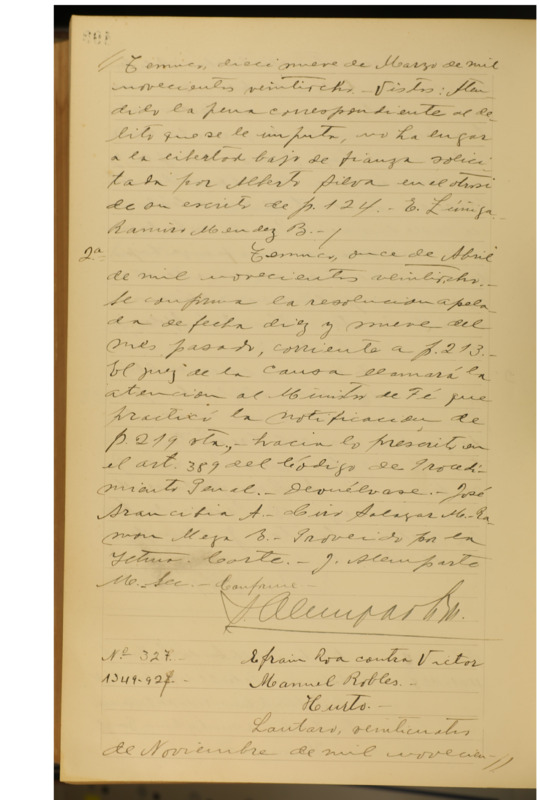 Temuco, diecinueve de Marzo de mil
novecientos veintiocho.- Vistos: Aten
dido la pena correspondiente al de-
lito que se le imputa, no ha lugar
a la libertad bajo de fianza solici
tada por Alberto Silva en el otrosi
de su escrito de f. 124.- E. Zúñiga.
Ramiro Mendez B.-/
2ª Temuco, once de Abril
de mil novecientos veintiocho.-
Se confirma la resolucion apela-
da de fecha diez y nueve del
mes pasado, corriente a f. 213.-
El juez de la causa llamará la
atencion al Ministro de Fé que
practicó la notificacion de
f. 219 vta, hacia lo prescrito en
el art. 389 del Código de Procedi-
miento Penal.- Devuélvase.- José
Arancibia A.- Ciro Salazar M.- Ra-
mon Meza B.- Proveido por la
Iltma. Corte.- J. Alemparte
M. Sec.- Conforme.-
Nº 327.- Efrain Roa contra Victor
1349-927.- Manuel Robles.-
Hurto.-
Lautaro, veinticuatro
de Noviembre de mil novecien-//